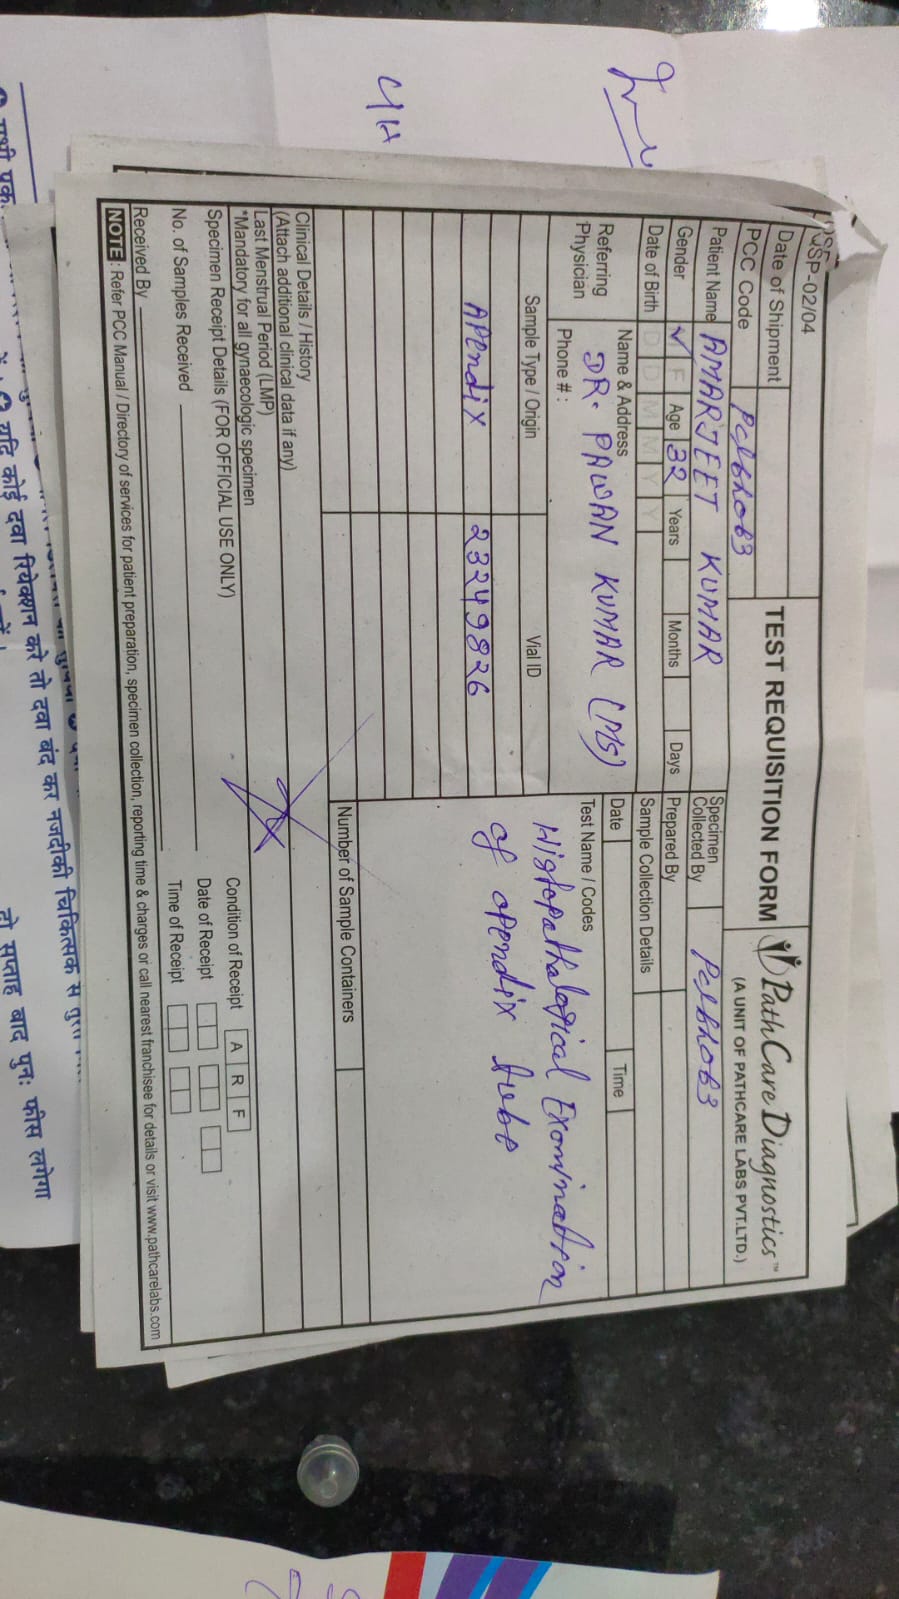 QSP-02/04
Date of Shipment
PCC Code
TEST REQUISITION FORM
PathCare Diagnostics™
(A UNIT OF PATHCARE LABS PVT.LTD.)
Patient Name AMARJEET KUMAR
Specimen Collected By
Gender ✓ F Age 32 Years Months Days
Prepared By
Date of Birth D D M M Y Y
Sample Collection Details
Referring Physician
Name & Address
DR. PAWAN KUMAR (MS)
Phone # :
Date Time
Test Name / Codes
Histopathalogical Examination
of apendix tube
Sample Type / Origin Vial ID
APendix 23249826
Number of Sample Containers
Clinical Details / History
(Attach additional clinical data if any)
Last Menstrual Period (LMP)
*Mandatory for all gynaecologic specimen
Specimen Receipt Details (FOR OFFICIAL USE ONLY)
Condition of Receipt A R F
No. of Samples Received
Date of Receipt
Received By
Time of Receipt
NOTE : Refer PCC Manual / Directory of services for patient preparation, specimen collection, reporting time & charges or call nearest franchisee for details or visit www.pathcarelabs.com
यदि कोई दवा रियेक्शन करे तो दवा बंद कर नजदीकी चिकित्सक से
दो सप्ताह बाद पुनः फीस लगेगा